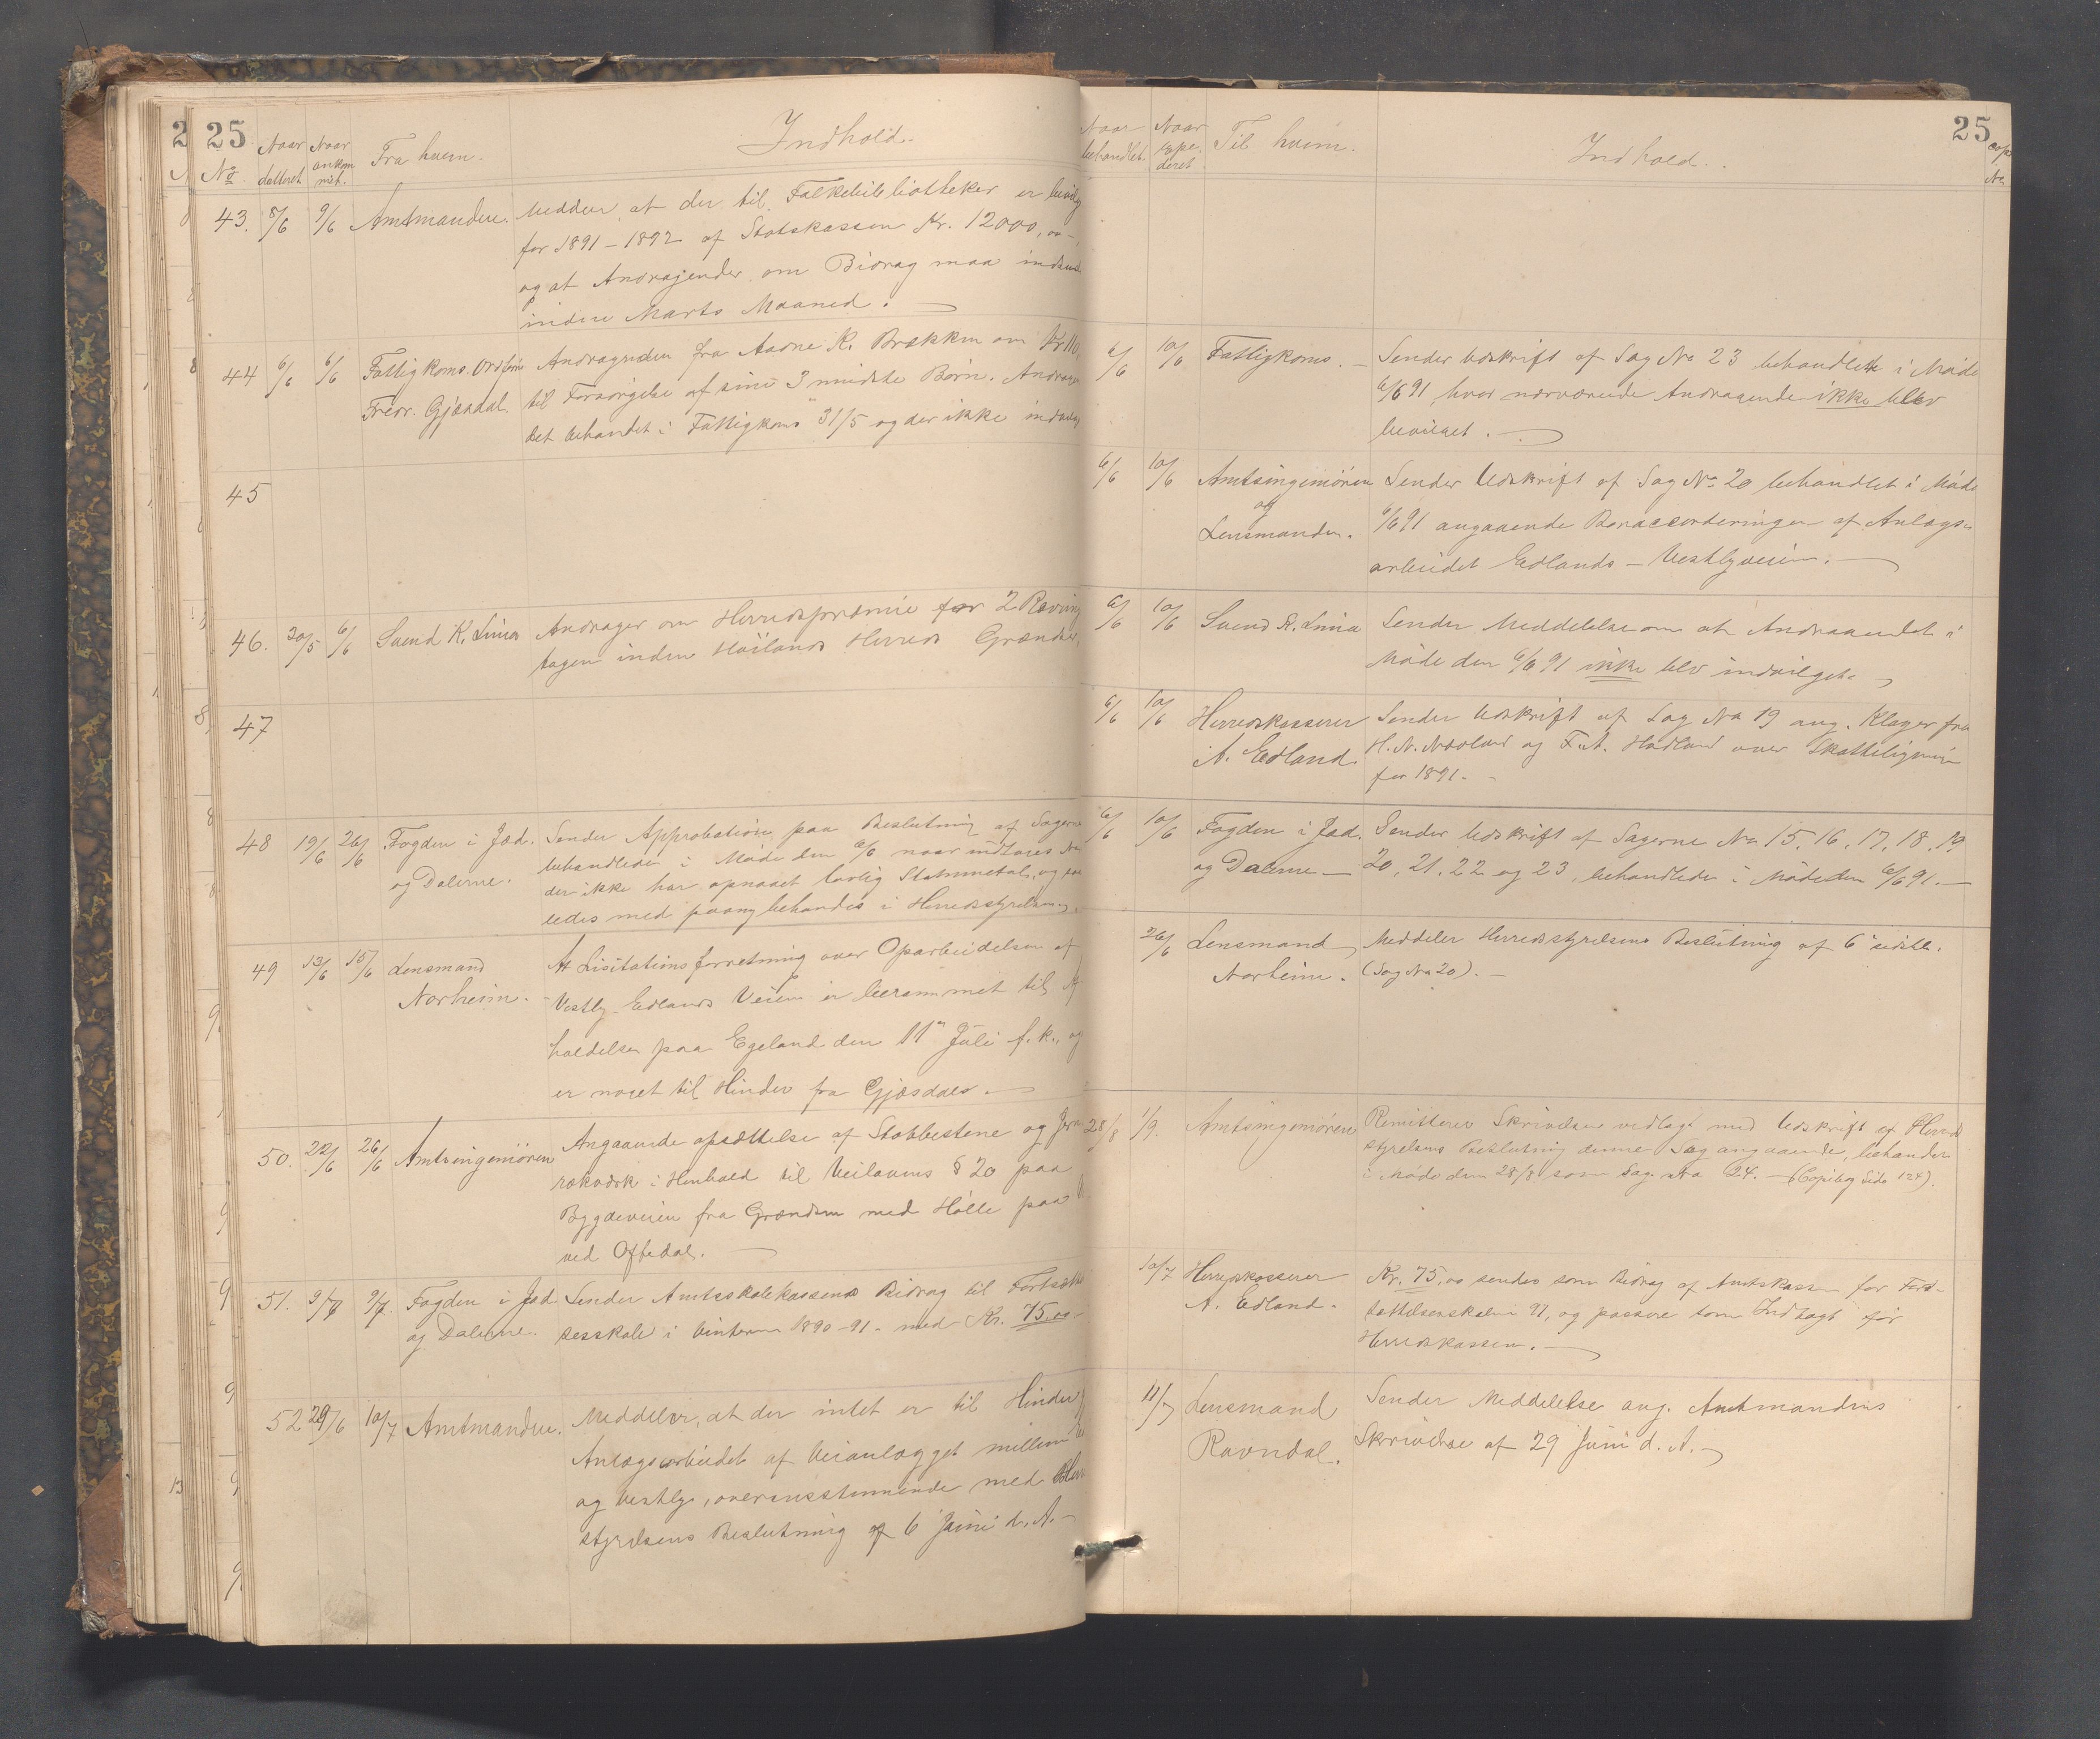 25
Indhold.
No Naar datteret Naar ankommet. Fra hvem.
43. 8/6 9/6 Amtmanden. Meddeler, at der til Folkebibliotheker er bevilg
for 1891–1892 af Statskassen Kr. 12000,00
og at Andragender om Bidrag maa indsend
inden Marts Maaned.
44 6/6 6/6 Fattigkoms. Ordfører Andragenden fra Aadne K. Brækken om Kr. 110,
Fredr. Gjesdal. til Forsørgelse af sine 3 mindste Børn. Andragen
det behandlet i Fattigkoms 31/5 og der ikke indvilg
45
46. 30/5 6/6 Svend K. Lima Andrager om Herredspræmie for 2 Ræveung
tagen inden Høilands Herreds Grændser.
47
48 19/6 26/6 Fogden i Jæd. Sender Approbation paa Beslutning af Sagerne
og Dalerne. behandlede i Møde den 6/6 naar undtages No
der ikke har opnaaet lovlig Stemmetal, og saa
ledes med paany behandles i Herredsstyrelsen.
49 13/6 15/6 Lensmand At Lisitationsforretning over Oparbeidelsen af
Norheim. Vestly-Edlands Veien er berammet til Af
holdelse paa Egeland den 11te Juli f. k., og
er noget til Hinder fra Gjæsdals.
50. 22/6 26/6 Amtsingeniøren Angaaende opsættelse af Stabbestene og Jern
rækværk i Henhold til Veilovens § 20 paa
Bygdeveien fra Grændsen med Hølle paa
ved Oftedal.
51. 9/7 9/7. Fogden i Jæd Sender Amtsskolekassens Bidrag til Fortsætt
og Dalerne. sesskole i Vinteren 1890-91. med Kr. 75,00
52 29/6 10/7 Amtmanden. Meddeler, at der intet er til Hinder
Anlægsarbeidet af Veianlægget mellem
og Vestly, overensstemmende med Her
styrelsens Beslutning af 6 Juni d. A.
25
Naar behandlet. Naar expederet. Til hvem. Indhold.
6/6 10/6 Fattigkoms. Sender Udskrift af Sag No 23 behandlet i Møde
6/6 91 hvor nærværende Andragende ikke blev
bevilget.
6/6 10/6 Amtsingeniøren Sender Udskrift af Sag No 20 behandlet i Møde
og
Lensmanden. 6/6 91 angaaende Bortaccorderingen af Anlægs-
arbeidet Edlands – Vestlyveien.
6/6 10/6 Svend K. Lima Sender Meddelelse om at Andragendet i
Møde den 6/6 91 ikke blev indvilget.
6/6 10/6 Herredskasserer Sender Udskrift af Sag No 19 ang. Klager fra
A. Edland. H. N. Nævland og F. A. Hadland over Skatteligningen
for 1891.
6/6 10/6 Fogden i Jæd. Sender Udskrift af Sagerne No 15, 16, 17, 18, 19
og Dalerne 20, 21, 22 og 23, behandlede i Møde den 6/6 91.
26/6 Lensmand Meddeler Herredsstyrelsens Beslutning af 6te sidstl.
Norheim. (Sag No 20).
28/8 1/9. Amtsingeniøren Remitterer Skrivelsen vedlagt med Udskrift af Herred
styrelsens Beslutning denne Sag angaaende, behandlet
i Møde den 28/8 som Sag No 24. — (Copibog Side 124).
10/7 Herredskasserer Kr. 75,00 sendes som Bidrag af Amtskassen for Fort-
A. Edland. sættelsesskolen 91, og passere som Indtægt for
Herredskassen.
11/7 Lensmand Sender Meddelelse ang. Amtmandens
Ravndal. Skrivelse af 29 Juni d. A.